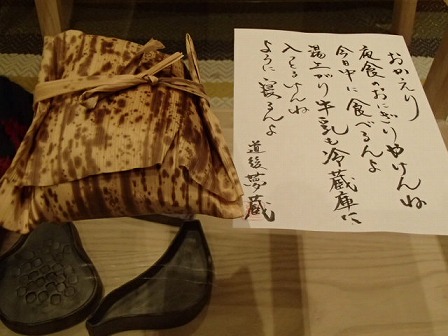 おかえり
夜食のおにぎりやけんね
今日中に食べるんよ
湯上がり牛乳も冷蔵庫に
入っとるけんね
ように寝るんよ
道後夢蔵